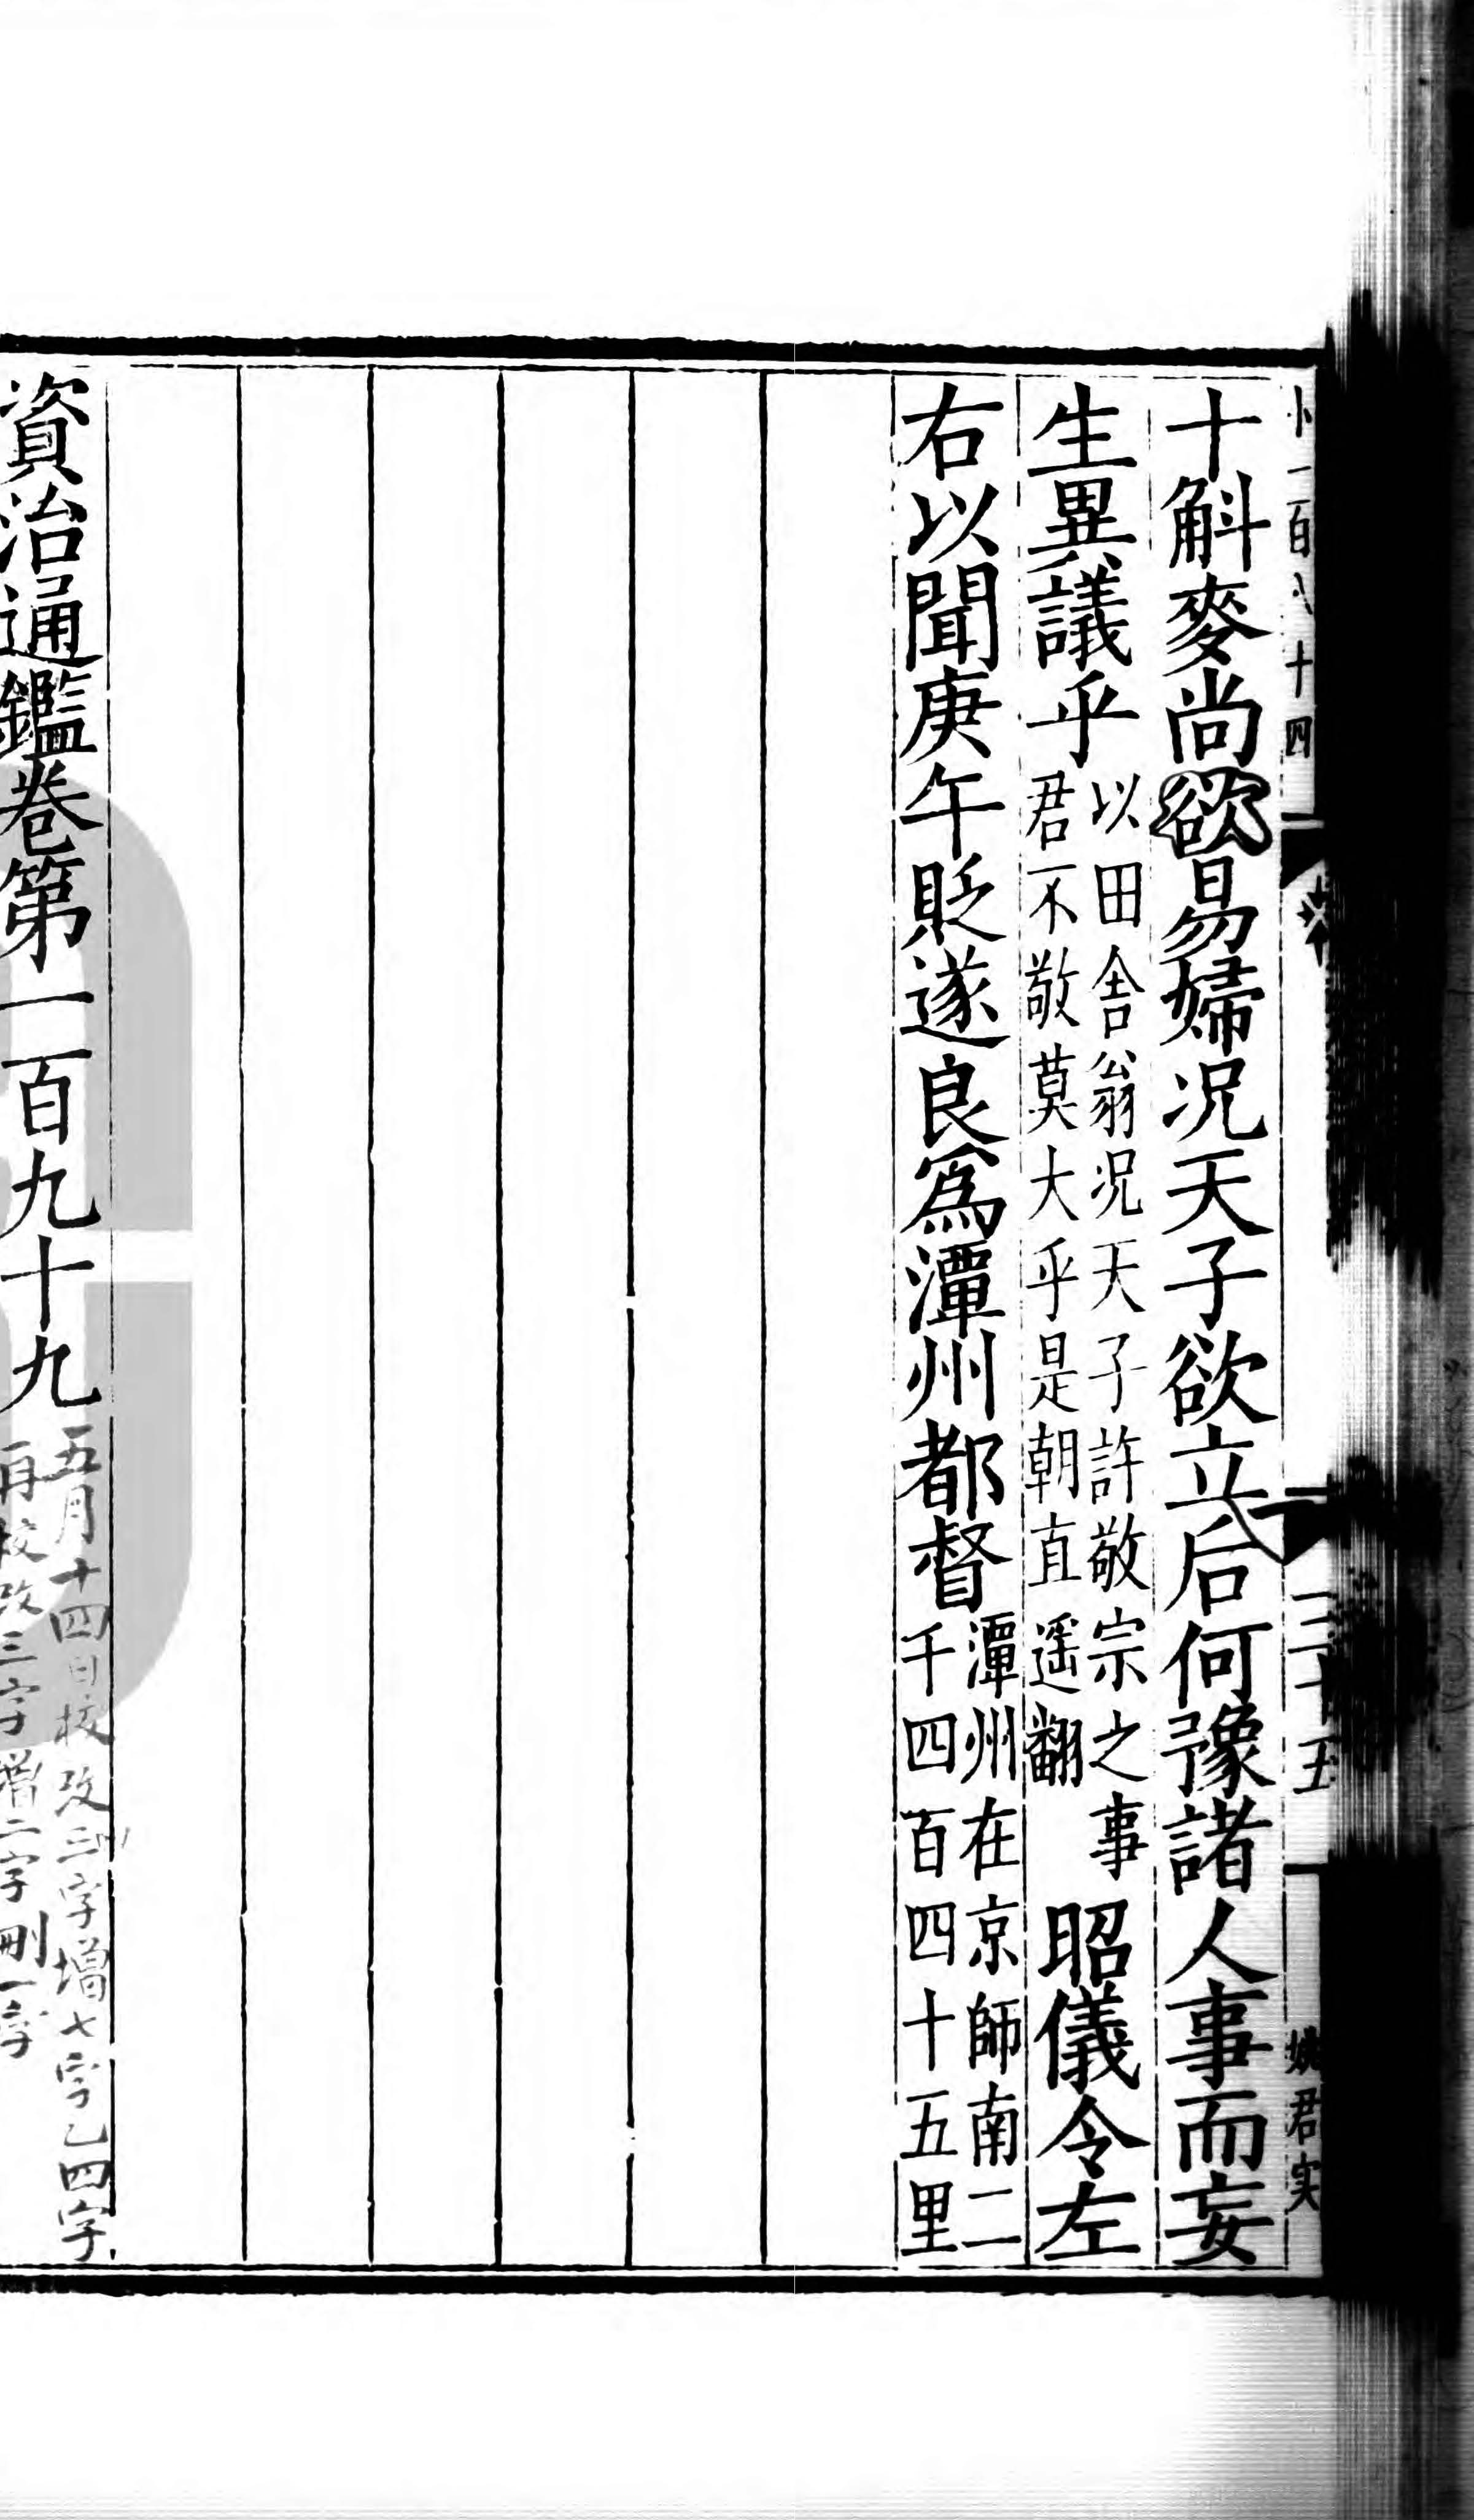 卜一百八十四
三十五
姚君実
十斛麥尚欲易婦况天子欲立后何豫諸人事而妄
生異議乎以田舍翁况天子許敬宗之事君不敬莫大乎是朝直遥翻昭儀令左
右以聞庚午貶遂良爲潭州都督潭州在京師南二千四百四十五里
資治通鑑卷第一百九十九
五月十四日校改三字增七字乙四字
再校改三字增二字刪一字